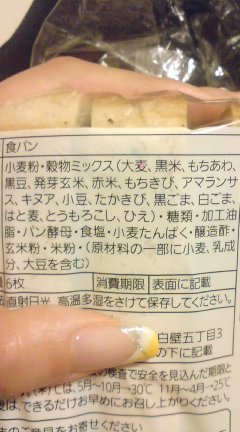 食パン
小麦粉・穀物ミックス（大麦、黒米、もちあわ、
黒豆、発芽玄米、赤米、もちきび、アマランサ
ス、キヌア、小豆、たかきび、黒ごま、白ごま、
はと麦、とうもろこし、ひえ）・糖類・加工油
脂・パン酵母・食塩・小麦たんぱく・醸造酢・
玄米粉・米粉・（原材料の一部に小麦、乳成
分、大豆を含む）
6枚 消費期限 表面に記載
直射日光、高温多湿をさけて保存してください。
白壁五丁目3
の下に記載
の検査で安全を見込んだ期限と
ては、5月〜10月→30℃ 11月〜4月→25℃
後は、できるだけお早めにお召し上がりください。